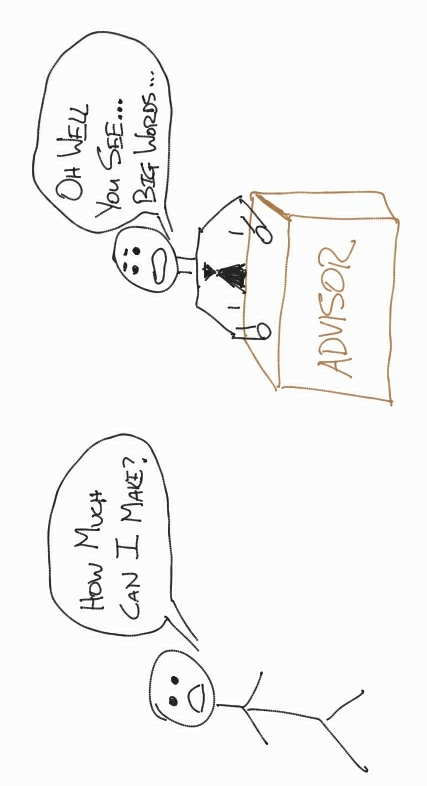 How Much
Can I Make?
Oh Well
You See...
Big Words...
ADVISOR